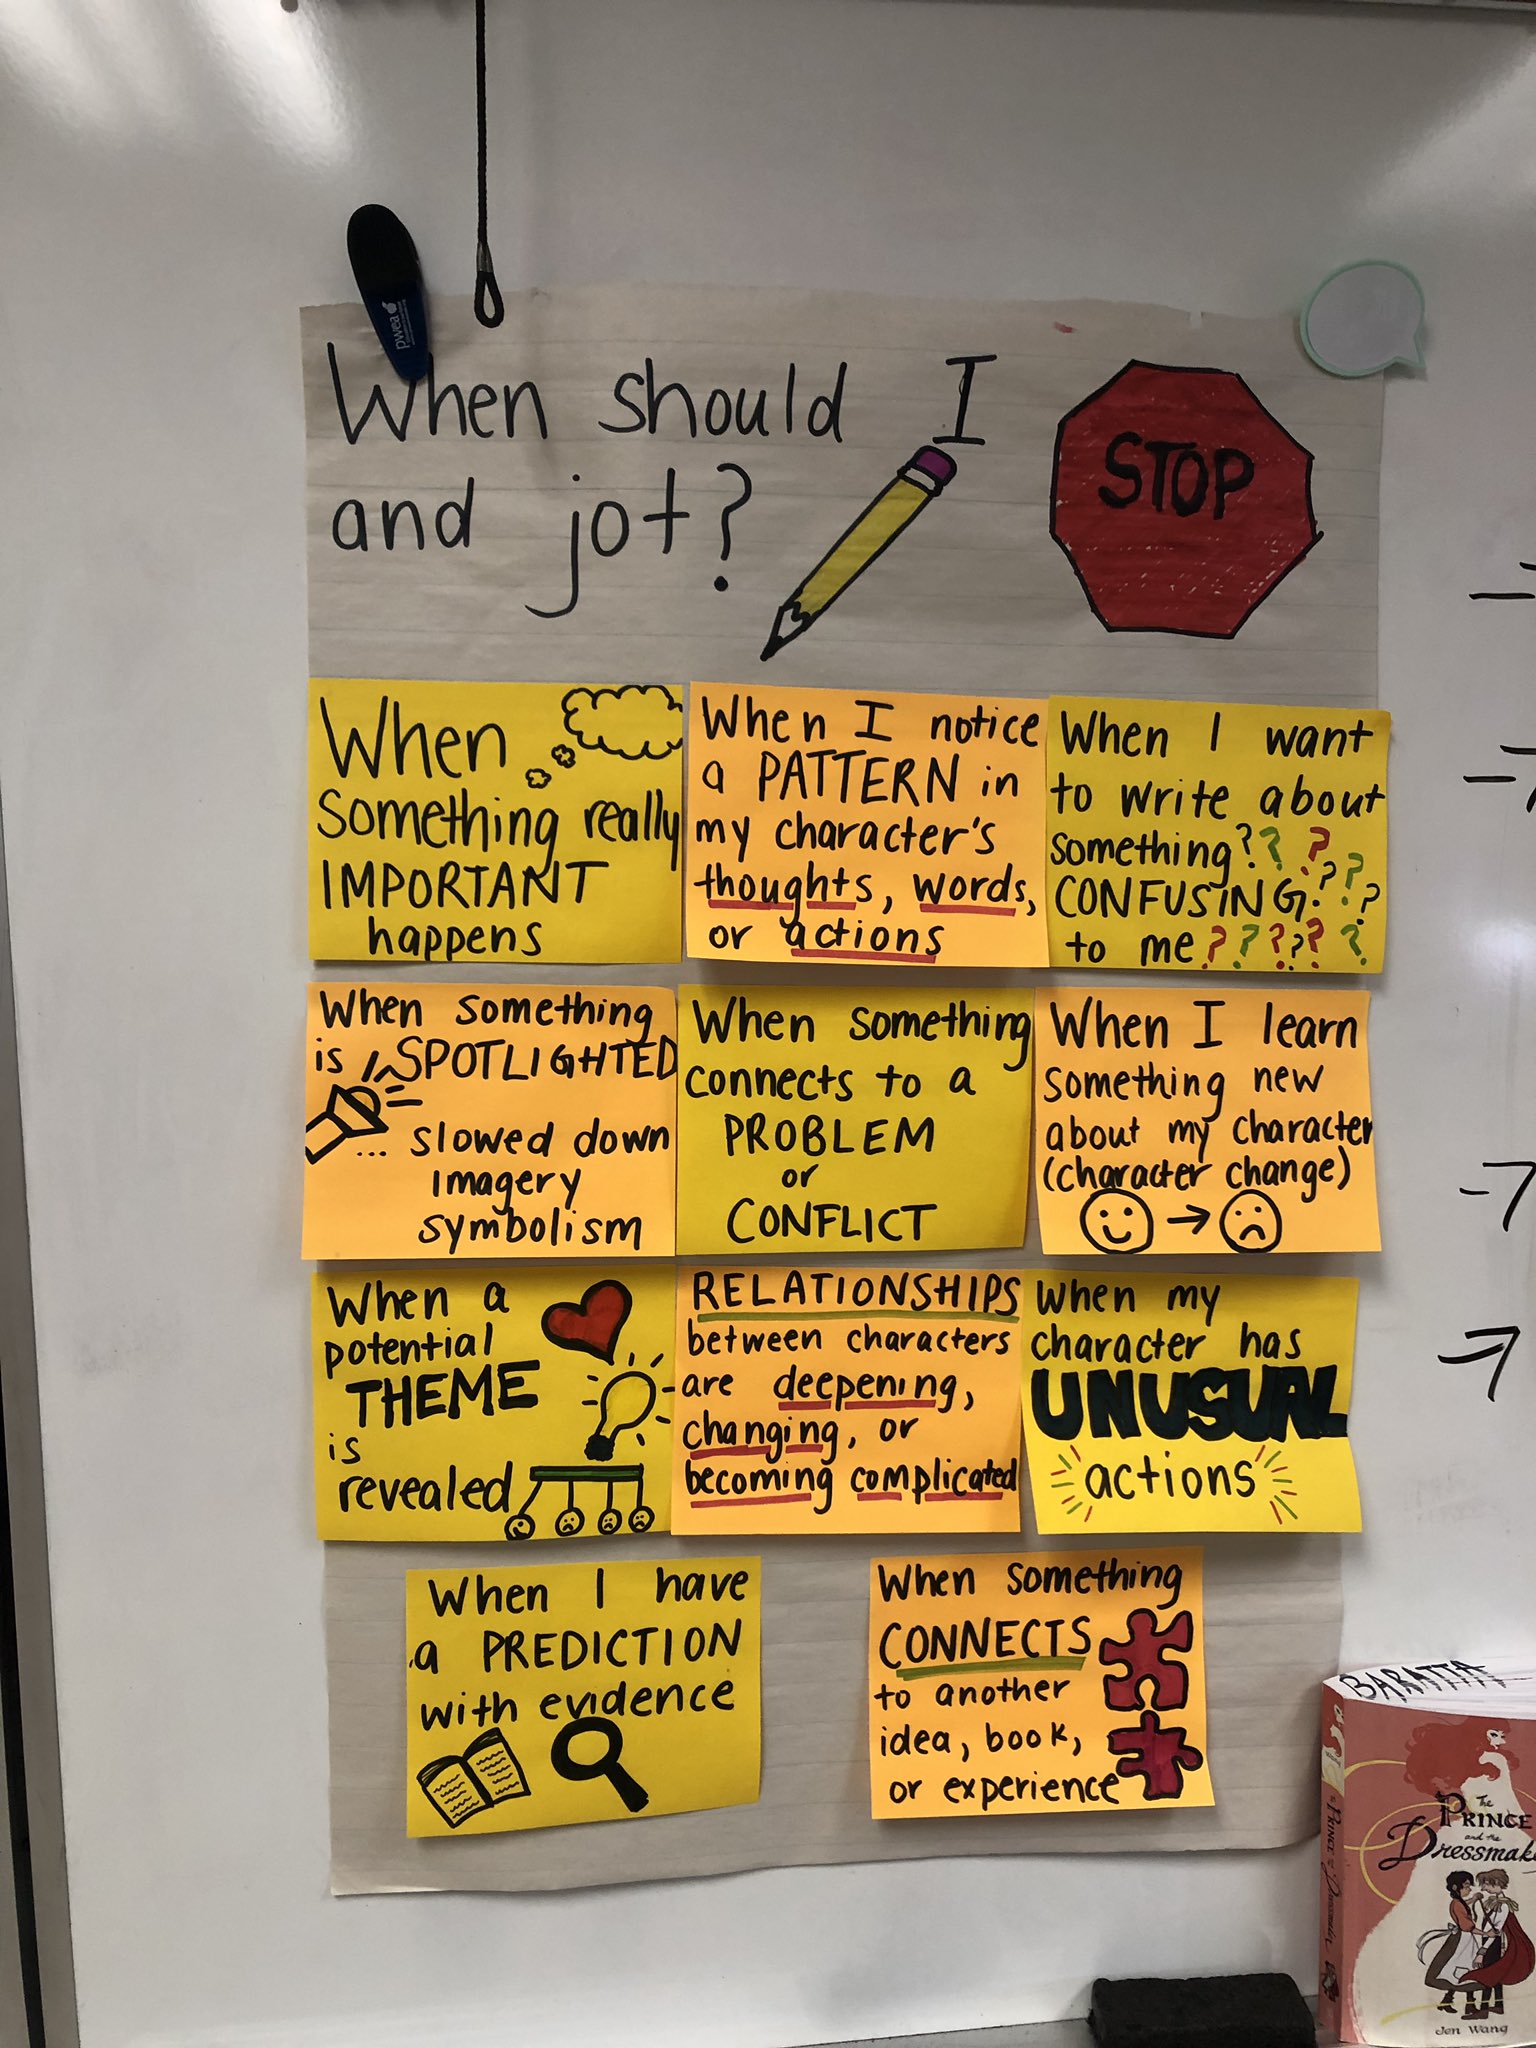 pwea
When should I
STOP
and jot?
When
something really
IMPORTANT
happens
When I notice
a PATTERN in
my character's
thoughts, words,
or actions
When I want
to write about
something??? 
CONFUSING???
to me??????
When something
is SPOTLIGHTED
... slowed down
imagery
symbolism
When something
connects to a
PROBLEM
or
CONFLICT
When I learn
something new
about my character
(character change)
When a
potential
THEME
is
revealed
RELATIONSHIPS
between characters
are deepening,
changing, or
becoming complicated
When my
character has
UNUSUAL
actions
When I have
a PREDICTION
with evidence
When something
CONNECTS
to another
idea, book,
or experience
BARATTA
The
PRINCE
and the
Dressmake
Jen Wang